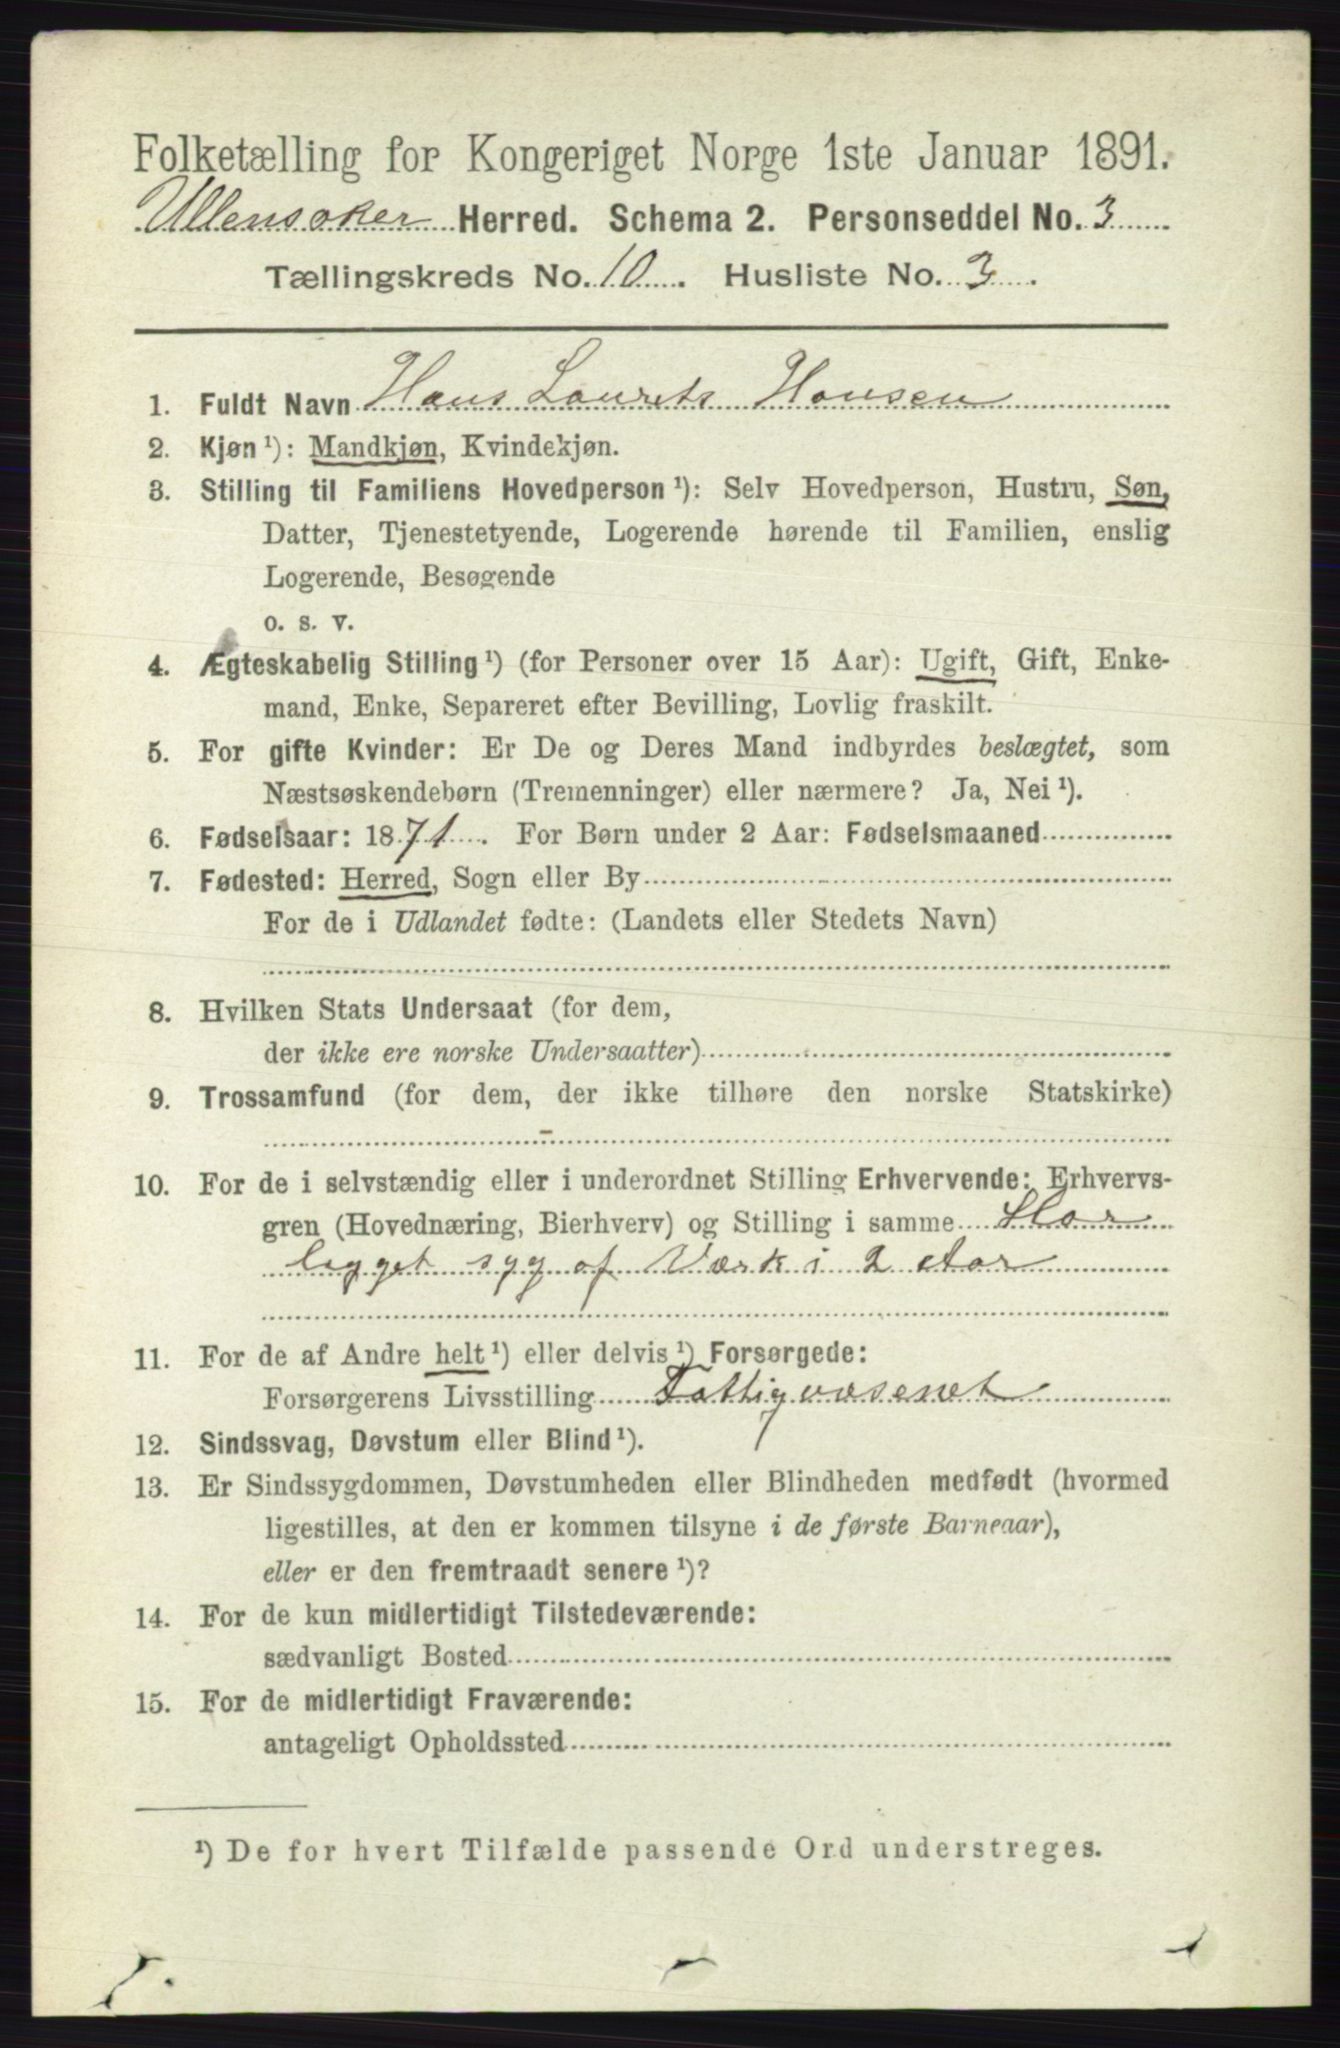 Folketælling for Kongeriget Norge 1ste Januar 1891.
Ullensaker Herred. Schema 2. Personseddel No. 3
Tællingskreds No. 10. Husliste No. 3.
1. Fuldt Navn Hans Laurits Hansen
2. Kjøn ¹): Mandkjøn, Kvindekjøn.
3. Stilling til Familiens Hovedperson ¹): Selv Hovedperson, Hustru, Søn,
Datter, Tjenestetyende, Logerende hørende til Familien, enslig
Logerende, Besøgende
o. s. v.
4. Ægteskabelig Stilling ¹) (for Personer over 15 Aar): Ugift, Gift, Enke-
mand, Enke, Separeret efter Bevilling, Lovlig fraskilt.
5. For gifte Kvinder: Er De og Deres Mand indbyrdes beslægtet, som
Næstsøskendebørn (Tremenninger) eller nærmere? Ja, Nei ¹).
6. Fødselsaar: 1871. For Børn under 2 Aar: Fødselsmaaned
7. Fødested: Herred, Sogn eller By
For de i Udlandet fødte: (Landets eller Stedets Navn)
8. Hvilken Stats Undersaat (for dem,
der ikke ere norske Undersaatter)
9. Trossamfund (for dem, der ikke tilhøre den norske Statskirke)
10. For de i selvstændig eller i underordnet Stilling Erhvervende: Erhvervs-
gren (Hovednæring, Bierhverv) og Stilling i samme Har
ligget syg af Værk i 2 Aar
11. For de af Andre helt ¹) eller delvis ¹) Forsørgede:
Forsørgerens Livsstilling Fattigvæsenet
12. Sindssvag, Døvstum eller Blind ¹).
13. Er Sindssygdommen, Døvstumheden eller Blindheden medfødt (hvormed
ligestilles, at den er kommen tilsyne i de første Barneaar),
eller er den fremtraadt senere ¹)?
14. For de kun midlertidigt Tilstedeværende:
sædvanligt Bosted
15. For de midlertidigt Fraværende:
antageligt Opholdssted
¹) De for hvert Tilfælde passende Ord understreges.